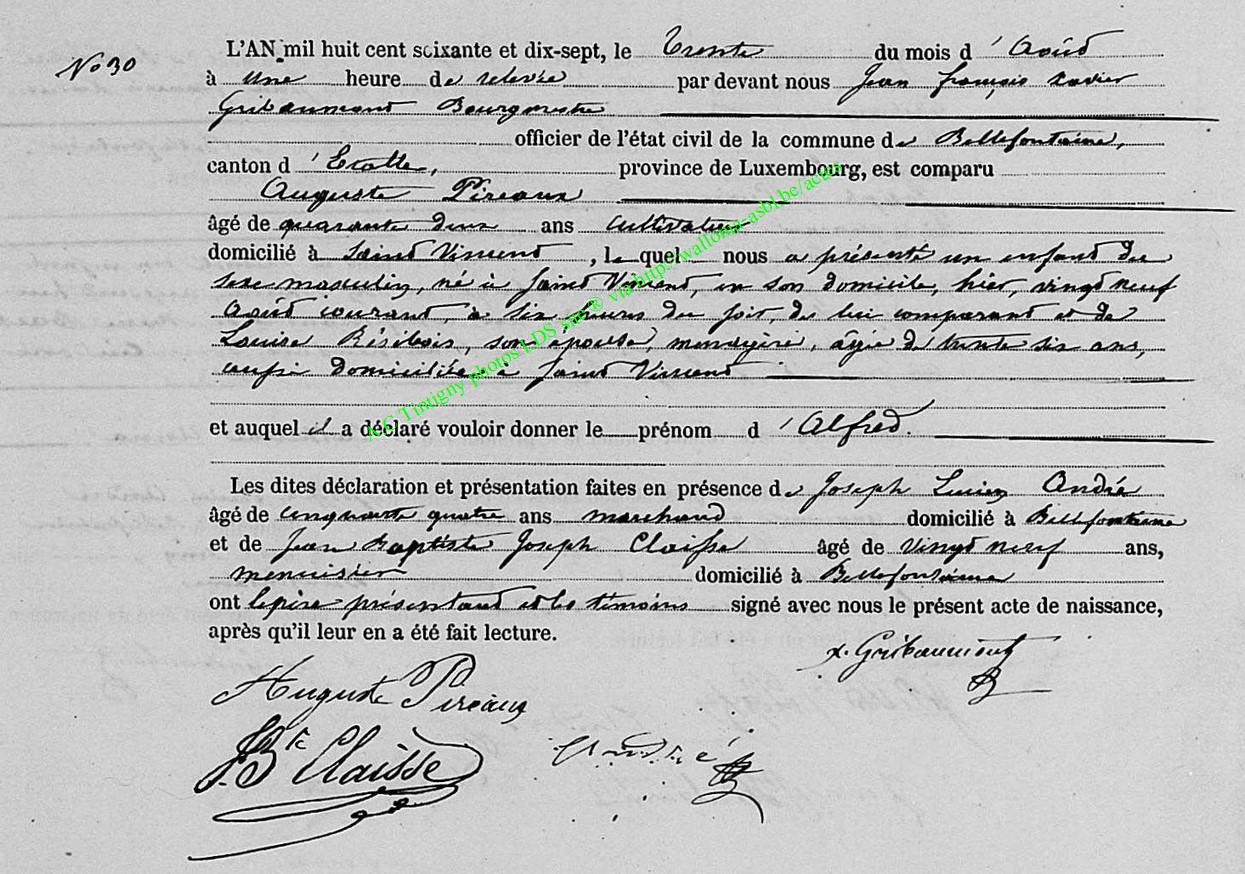 No 30
L'AN mil huit cent soixante et dix-sept, le trente du mois d'Août
à une heure de relevée par devant nous Jean françois xavier
Gribaumont Bourgmestre
officier de l'état civil de la commune de Bellefontaine,
canton d'Etalle, province de Luxembourg, est comparu
Auguste Pireaux
âgé de quarante deux ans cultivateur
domicilié à Saint Vincent, lequel nous a présenté un enfant du
sexe masculin, né à Saint Vincent, en son domicile, hier, vingt neuf
Août courant, à six heures du soir, de lui comparant et de
Louise Résibois, son épouse, ménagère, âgée de trente six ans,
aussi domiciliée à Saint Vincent
et auquel il a déclaré vouloir donner le prénom d'Alfred.
Les dites déclaration et présentation faites en présence de Joseph Lucien André
âgé de cinquante quatre ans marchand domicilié à Bellefontaine
et de Jean Baptiste Joseph Claisse âgé de vingt neuf ans,
menuisier domicilié à Bellefontaine
ont le père présentant et les témoins signé avec nous le présent acte de naissance,
après qu'il leur en a été fait lecture.
x. Gribaumont
Auguste Pireaux
J. Bte Claisse
André
AGC Tintigny photos LDS sur ® via http://wallonia-asbl.be/actes